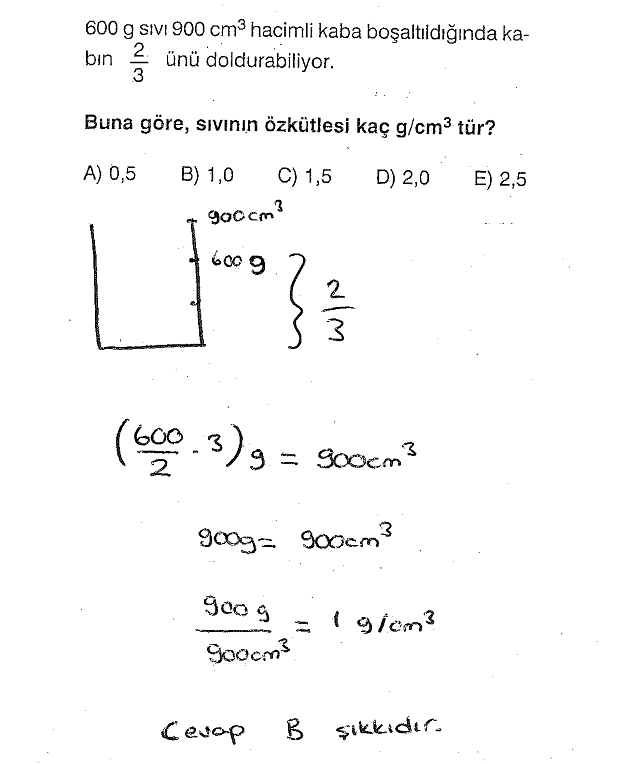 600 g sıvı 900 cm³ hacimli kaba boşaltıldığında ka-
bın 2/3 ünü doldurabiliyor.
Buna göre, sıvının özkütlesi kaç g/cm³ tür?
A) 0,5 B) 1,0 C) 1,5 D) 2,0 E) 2,5
900cm³
600 g
2/3
(600/2 . 3) g = 900cm³
900g = 900cm³
900 g / 900cm³ = 1 g/cm³
Cevap B şıkkıdır.